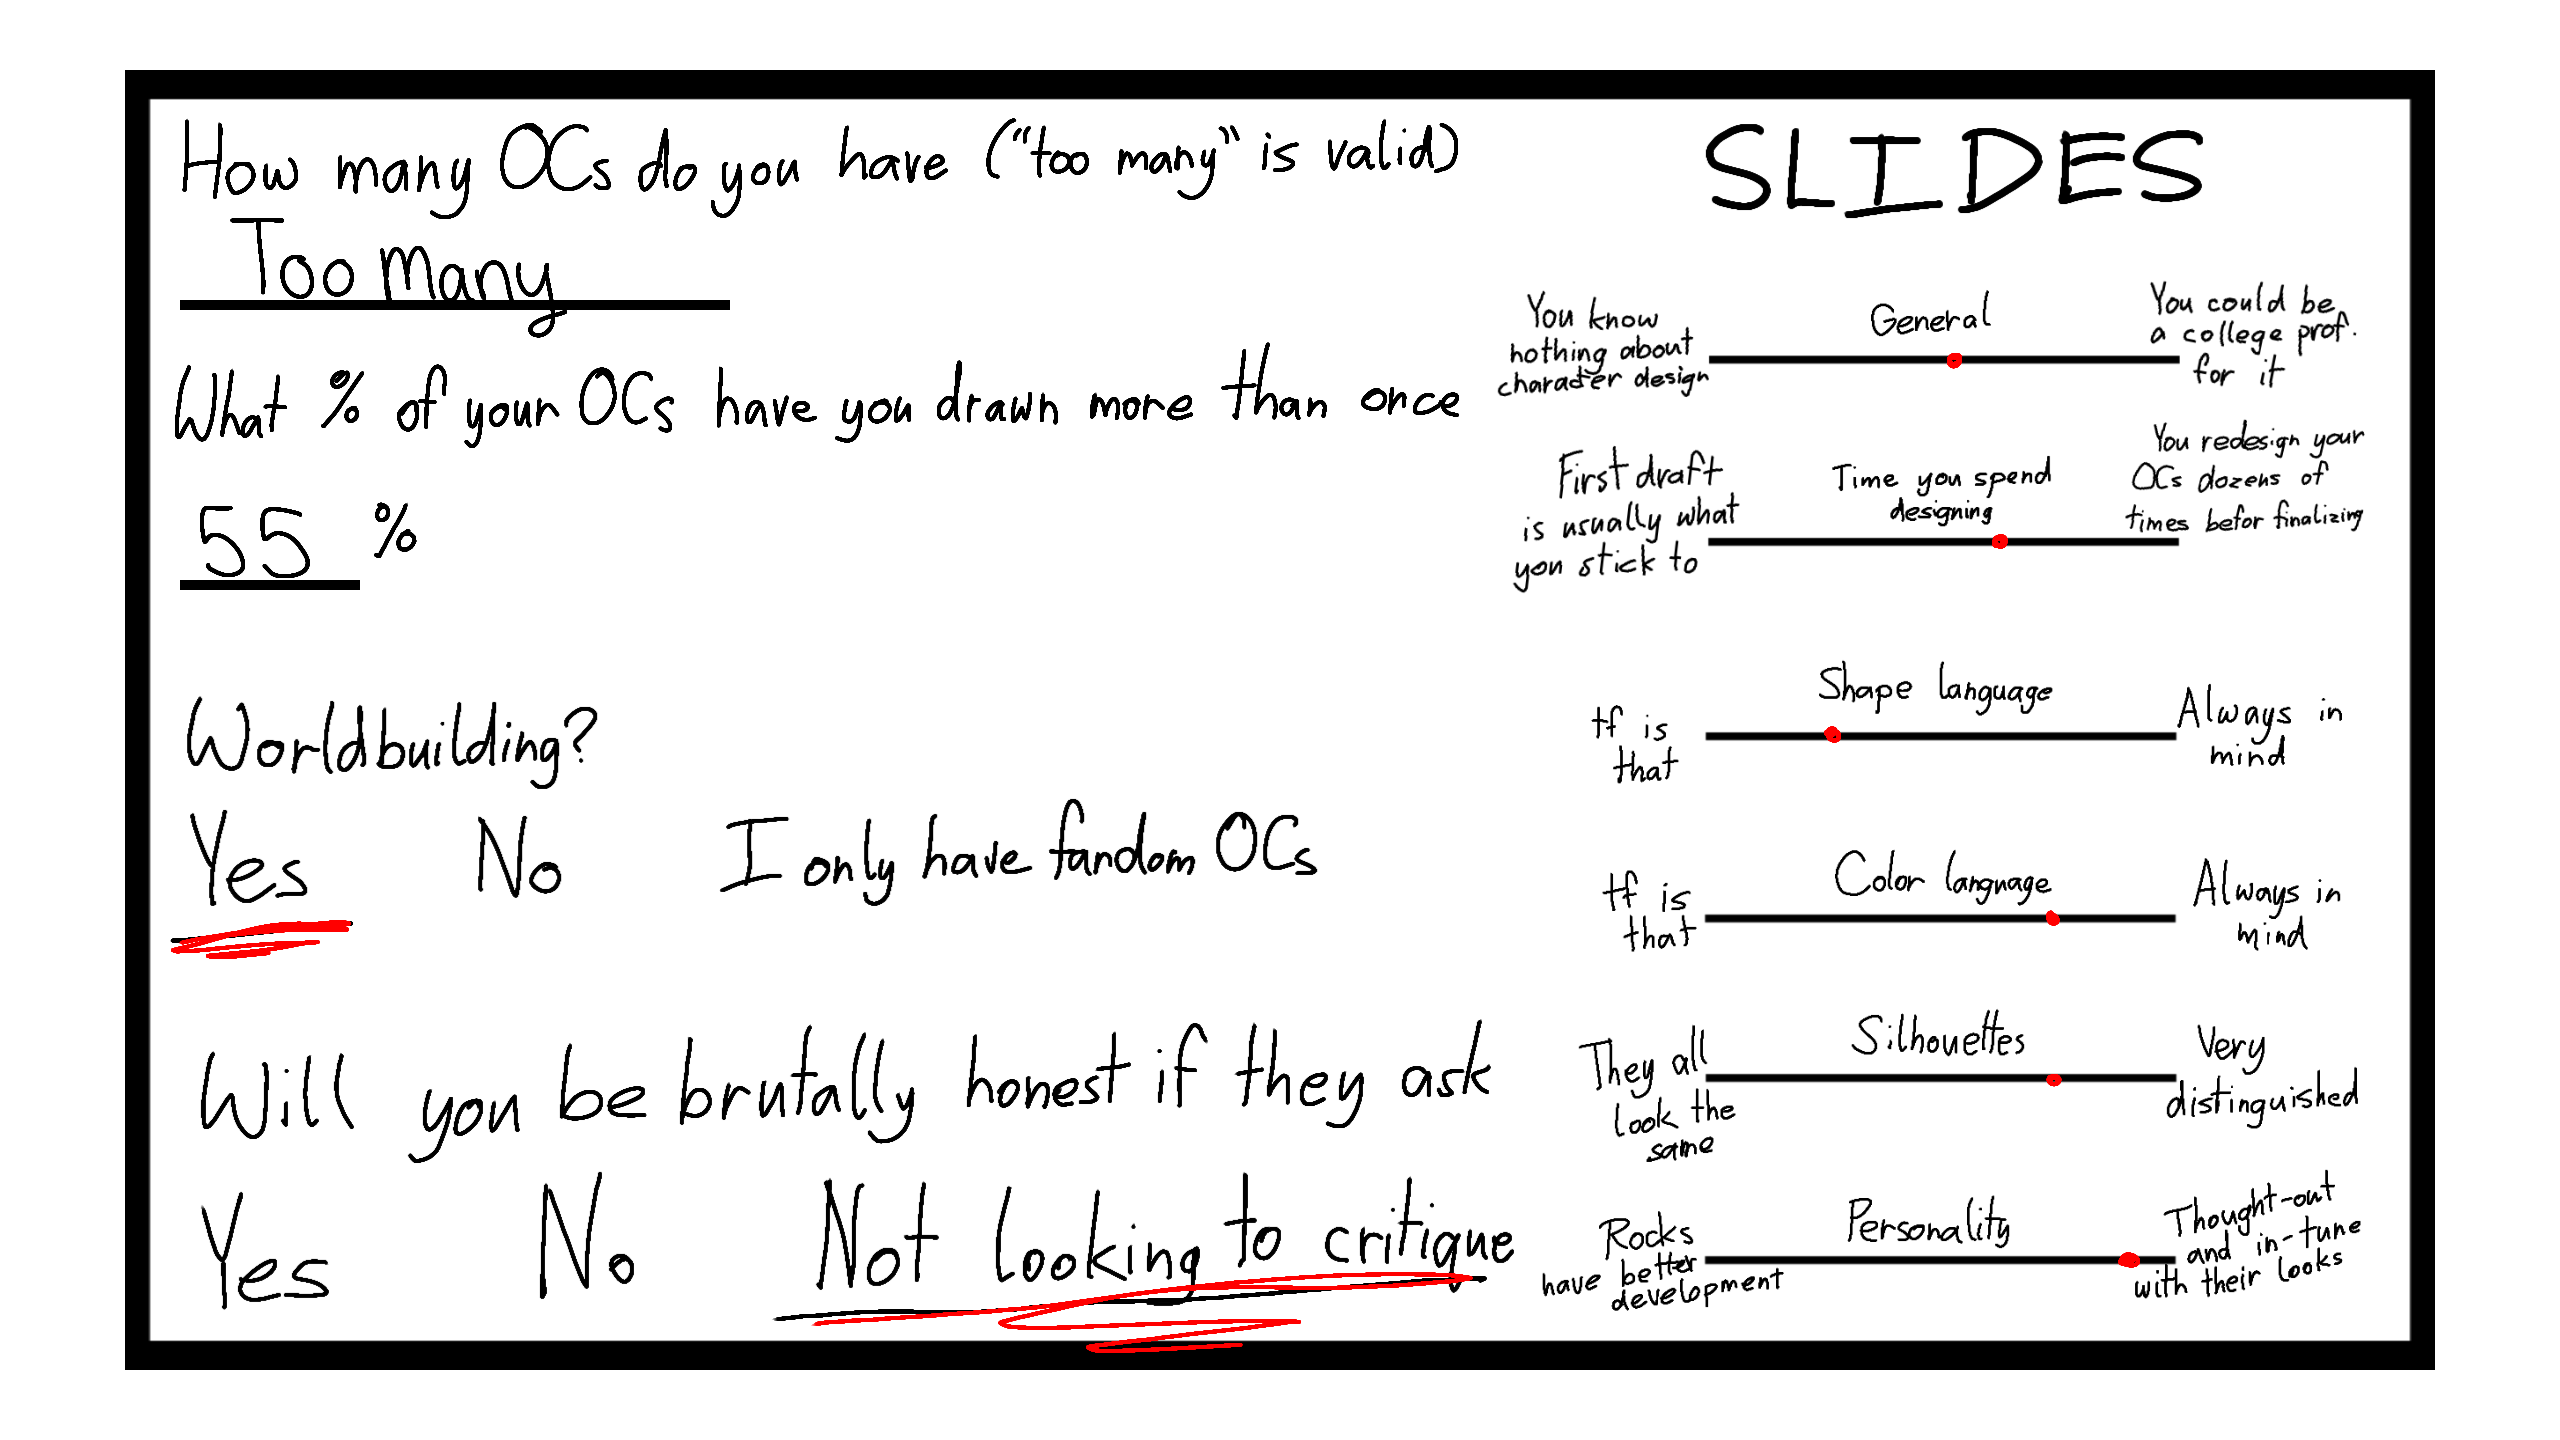 How many OCs do you have ("too many" is valid)
Too many
What % of your OCs have you drawn more than once
55 %
Worldbuilding?
Yes No I only have fandom OCs
Will you be brutally honest if they ask
Yes No Not looking to critique
SLIDES
General
You know
nothing about
character design
You could be
a college prof.
for it
Time you spend
designing
First draft
is usually what
you stick to
You redesign your
OCs dozens of
times befor finalizing
Shape language
tf is
that
Always in
mind
Color language
tf is
that
Always in
mind
Silhouettes
They all
look the
same
Very
distinguished
Personality
Rocks
have better
development
Thought-out
and in-tune
with their looks